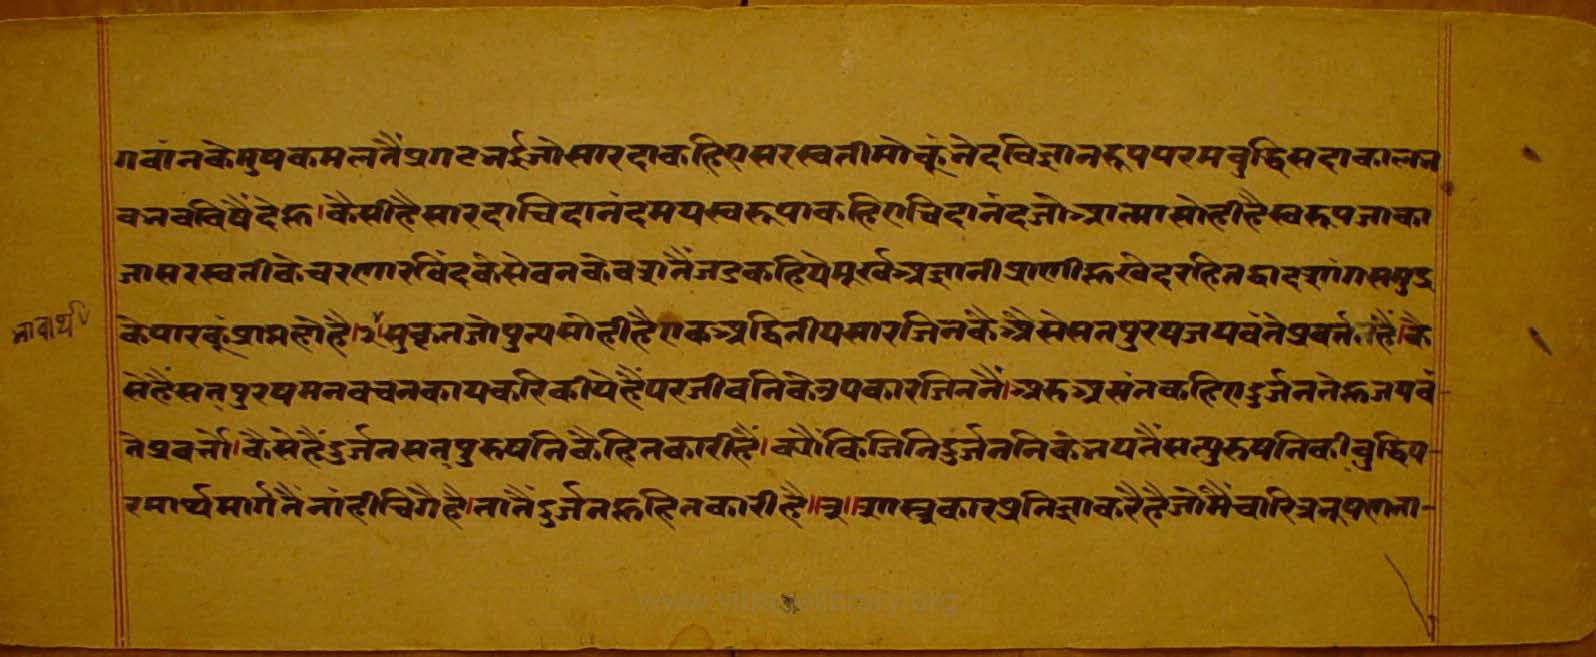 गवांनके मुषकमलतैं प्रगट भई जो सारदा कहिए सरस्वती मोकूं भेदविज्ञानरूप परम बुद्धि सदाकाल भ
वभवविषैं देहू। कैसी है सारदा चिदानंदमयस्वरूपा कहिए चिदानंद जो आत्मा सो ही है स्वरूप जाका
जा सरस्वतीके चरणारविंदके सेवनके वशतैं जड कहिये मूर्ख अज्ञानी प्राणी हू खेदरहित द्वादशांग समुद्र
भावार्थ
के पारकूं प्राप्त हो है।२। सुकृत जो पुन्य सो ही है एक अद्वितीय सार जिनकै अैसे सतपुरष जयवंते प्रवर्त्तत हैं। कै
से हैं सत्पुरष मन वचन काय करि कीये हैं पर जीवनिके उपकार जिननैं। अरु असंत कहिए दुर्जन ते हू जयवं
ते प्रवर्त्तो। कैसे हैं दुर्जन सत्पुरुषनिकै हितकारी हैं। क्यौंकि जिनि दुर्जननिके भयतैं सत्पुरुषनिकी बुद्धि प
रमार्थ मार्गतैं नांही चिगै है। तातैं दुर्जन हू हितकारी है॥३॥ शास्त्रकार प्रतिज्ञा करै है जो मैं चारित्रभूषण ना
www.vitragelibrary.org